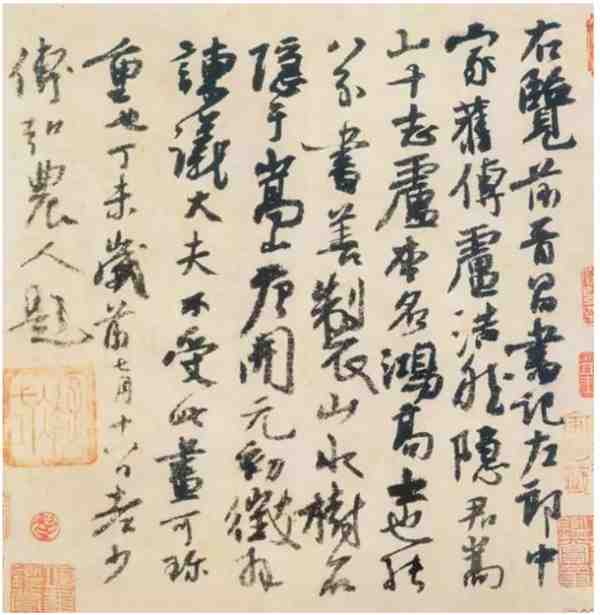 右覽前晉昌書記左郎中
家舊傳盧浩然隱居嵩
山十志盧本名鴻高士也能
八分書善製山水樹石
隱于嵩山唐開元初徵拜
諫議大夫不受此畫可珍
重也丁未歲前七月十八日老少
傅弘農人題